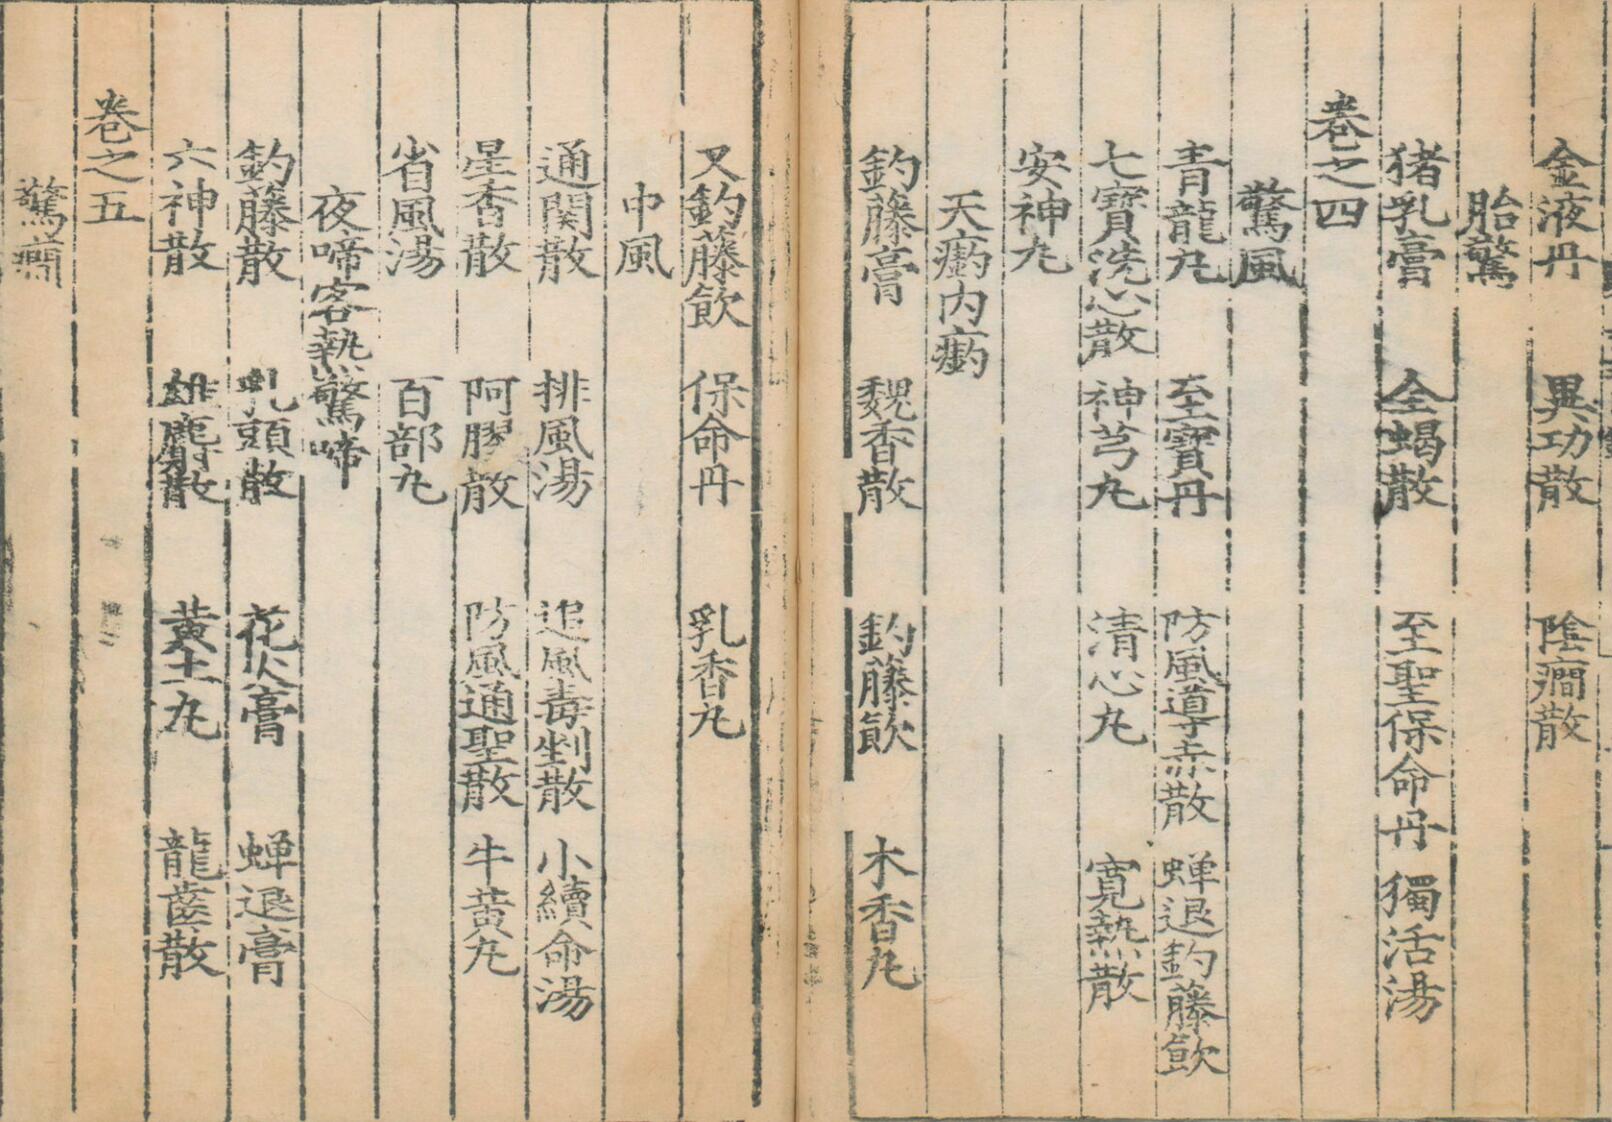 金液丹 異功散 陰癎散
胎驚
猪乳膏 全蝎散 至聖保命丹 獨活湯
卷之四
驚風
青龍丸 至寶丹 防風導赤散 蟬退鈎藤飲
七寶洗心散 神芎丸 清心丸 寬熱散
安神丸
天瘹内瘹
鈎藤膏 魏香散 鈎藤飲 木香丸
又鈎藤飲 保命丹 乳香丸
中風
通関散 排風湯 追風毒剉散 小續命湯
星香散 阿膠散 防風通聖散 牛黄丸
省風湯 百部丸
夜啼客熱驚啼
鈎藤散 乳頭散 花火膏 蟬退膏
六神散 雄麝散 黄土丸 龍齒散
卷之五
驚癎